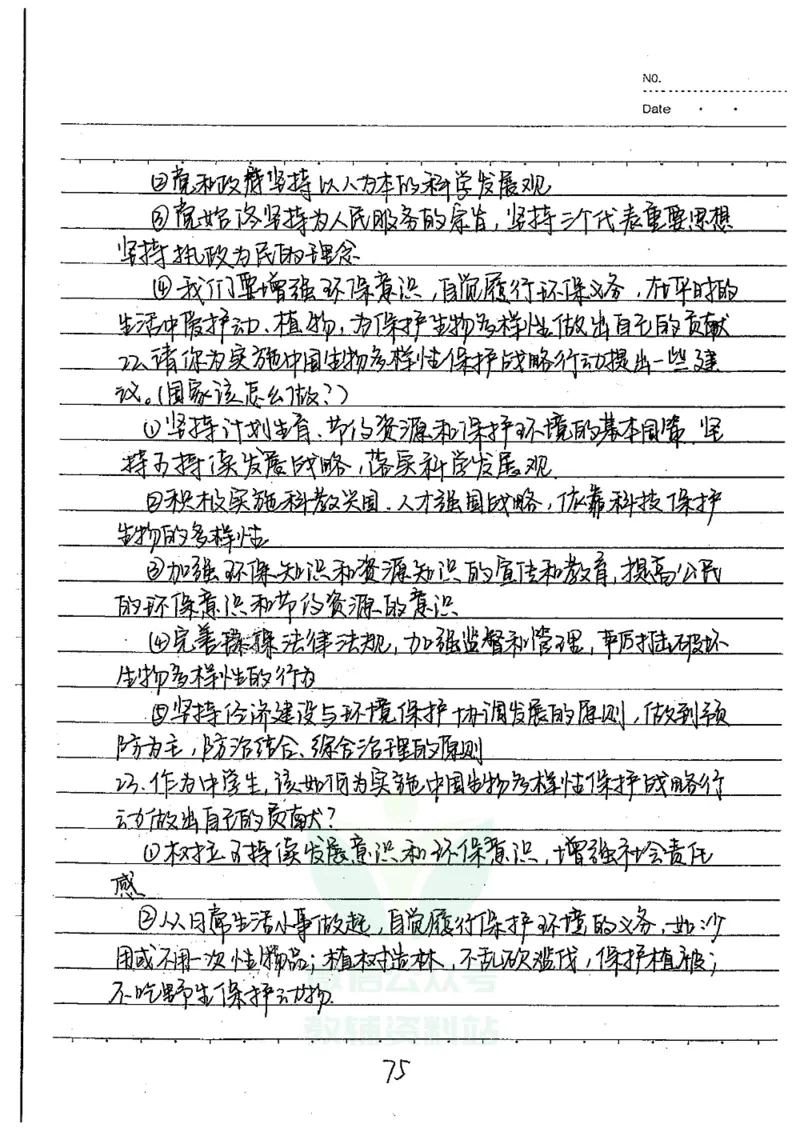 No.
Date
②党和政府坚持以人为本的科学发展观
③党始终坚持为人民服务的宗旨,坚持三个代表重要思想
坚持执政为民的理念
④我们要增强环保意识,自觉履行环保义务,在平时的
生活中爱护动、植物,为保护生物多样性做出自己的贡献
22、请你为实施中国生物多样性保护战略行动提出一些建
议。(国家该怎么做?)
①坚持计划生育、节约资源和保护环境的基本国策,坚
持可持续发展战略,落实科学发展观
②积极实施科教兴国、人才强国战略,依靠科技保护
生物的多样性
③加强环保知识和资源知识的宣传和教育,提高公民
的环保意识和节约资源的意识
④完善 法律法规,加强监督和管理,严厉打击破坏
生物多样性的行为
⑤坚持经济建设与环境保护协调发展的原则,做到预
防为主,防治结合、综合治理的原则
23、作为中学生,该如何为实施中国生物多样性保护战略行
动做出自己的贡献?
①树立可持续发展意识和环保意识,增强社会责任
感
②从日常生活小事做起,自觉履行保护环境的义务,如少
用或不用一次性物品;植树造林,不乱砍滥伐,保护植被;
不吃野生保护动物.
微信公众号
教辅资料站
75